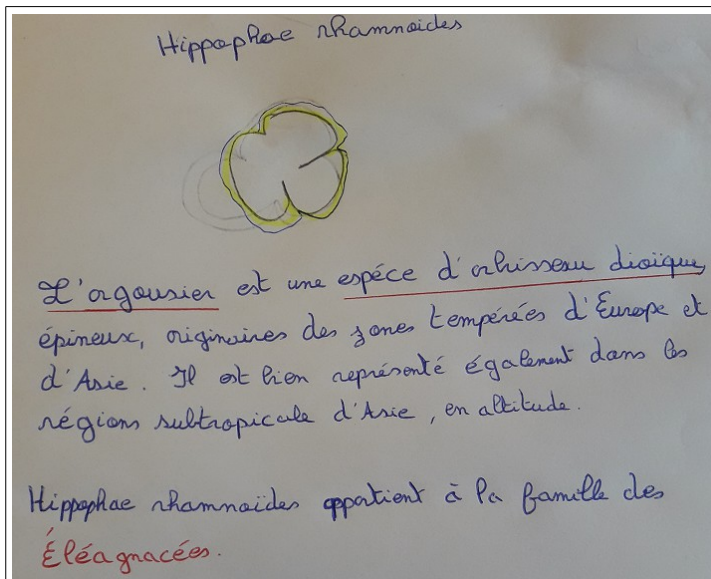 Hippophae rhamnoides
L'argousier est une espéce d'arbisseau dioïque,
épineux, originaires des zones tempérées d'Europe et
d'Asie. Il est bien représenté également dans les
régions subtropicale d'Asie, en altitude.
Hippophae rhamnoïdes appartient à la famille des
Éléagnacées.